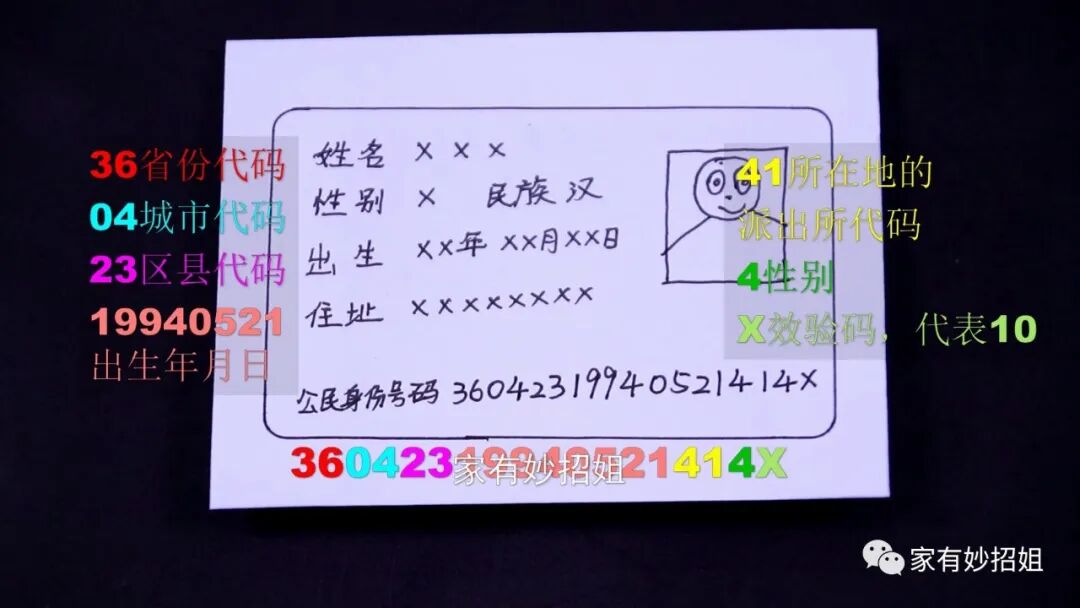 36省份代码
04城市代码
23区县代码
19940521
出生年月日
姓名 × × ×
性别 × 民族 汉
出生 ××年 ××月××日
住址 ××××××××
公民身份号码 36042319940521414X
41所在地的
派出所代码
4性别
X效验码，代表10
36042319940521414X
家有妙招姐
家有妙招姐